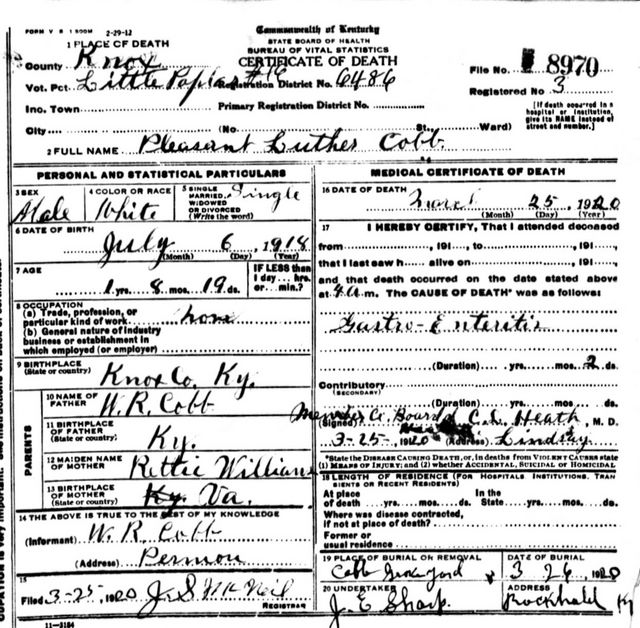 FORM V S 1 500M 2-29-12
Commonwealth of Kentucky
STATE BOARD OF HEALTH
BUREAU OF VITAL STATISTICS
CERTIFICATE OF DEATH
1 PLACE OF DEATH
County Knox
File No. 8970
Vot. Pct. Little Poplar #16
Registration District No. 6486
Registered No. 3
Inc. Town
Primary Registration District No.
[If death occurred in a hospital or institution, give its NAME instead of street and number.]
City (No. St. Ward)
2 FULL NAME Pleasant Luther Cobb
PERSONAL AND STATISTICAL PARTICULARS
3 SEX Male
4 COLOR OR RACE White
5 SINGLE MARRIED, WIDOWED OR DIVORCED (Write the word) Single
6 DATE OF BIRTH
July 6, 1918
(Month) (Day) (Year)
7 AGE
1 yrs. 8 mos. 19 ds.
IF LESS than 1 day... hrs. or... min.?
8 OCCUPATION
(a) Trade, profession, or particular kind of work none
(b) General nature of industry business or establishment in which employed (or employer)
9 BIRTHPLACE
(State or country)
Knox Co. Ky.
PARENTS
10 NAME OF FATHER W. R. Cobb
11 BIRTHPLACE OF FATHER (State or country) Ky.
12 MAIDEN NAME OF MOTHER Rettie Williams
13 BIRTHPLACE OF MOTHER (State or country) Ky. Va.
14 THE ABOVE IS TRUE TO THE BEST OF MY KNOWLEDGE
(Informant) W. R. Cobb
(Address)
15
Filed 3-25-, 1920 J. S. McNeil
REGISTRAR
11-3184
MEDICAL CERTIFICATE OF DEATH
16 DATE OF DEATH
25, 1920
(Month) (Day) (Year)
17 I HEREBY CERTIFY, That I attended deceased
from, 191, to, 191,
that I last saw h alive on, 191,
and that death occurred on the date stated above
at 4 a.m. The CAUSE OF DEATH* was as follows:
Gastro-Enteritis
(Duration) yrs. mos. 2 ds.
Contributory
(SECONDARY)
(Duration) yrs. mos. ds.
Member Co. Board
(Signed) C. L. Heath, M. D.
3-25-, 1920 (Address) Lindsay
*State the DISEASE CAUSING DEATH, or, in deaths from VIOLENT CAUSES state (1) MEANS OF INJURY; and (2) whether ACCIDENTAL, SUICIDAL OR HOMICIDAL
18 LENGTH OF RESIDENCE (FOR HOSPITALS INSTITUTIONS, TRANSIENTS OR RECENT RESIDENTS)
At place of death yrs. mos. ds.
In the State yrs. mos. ds.
Where was disease contracted, if not at place of death?
Former or usual residence
19 PLACE OF BURIAL OR REMOVAL
Cobb Grave Yard
DATE OF BURIAL
3 26, 1920
20 UNDERTAKER
J. E. Sharp
ADDRESS
Ky